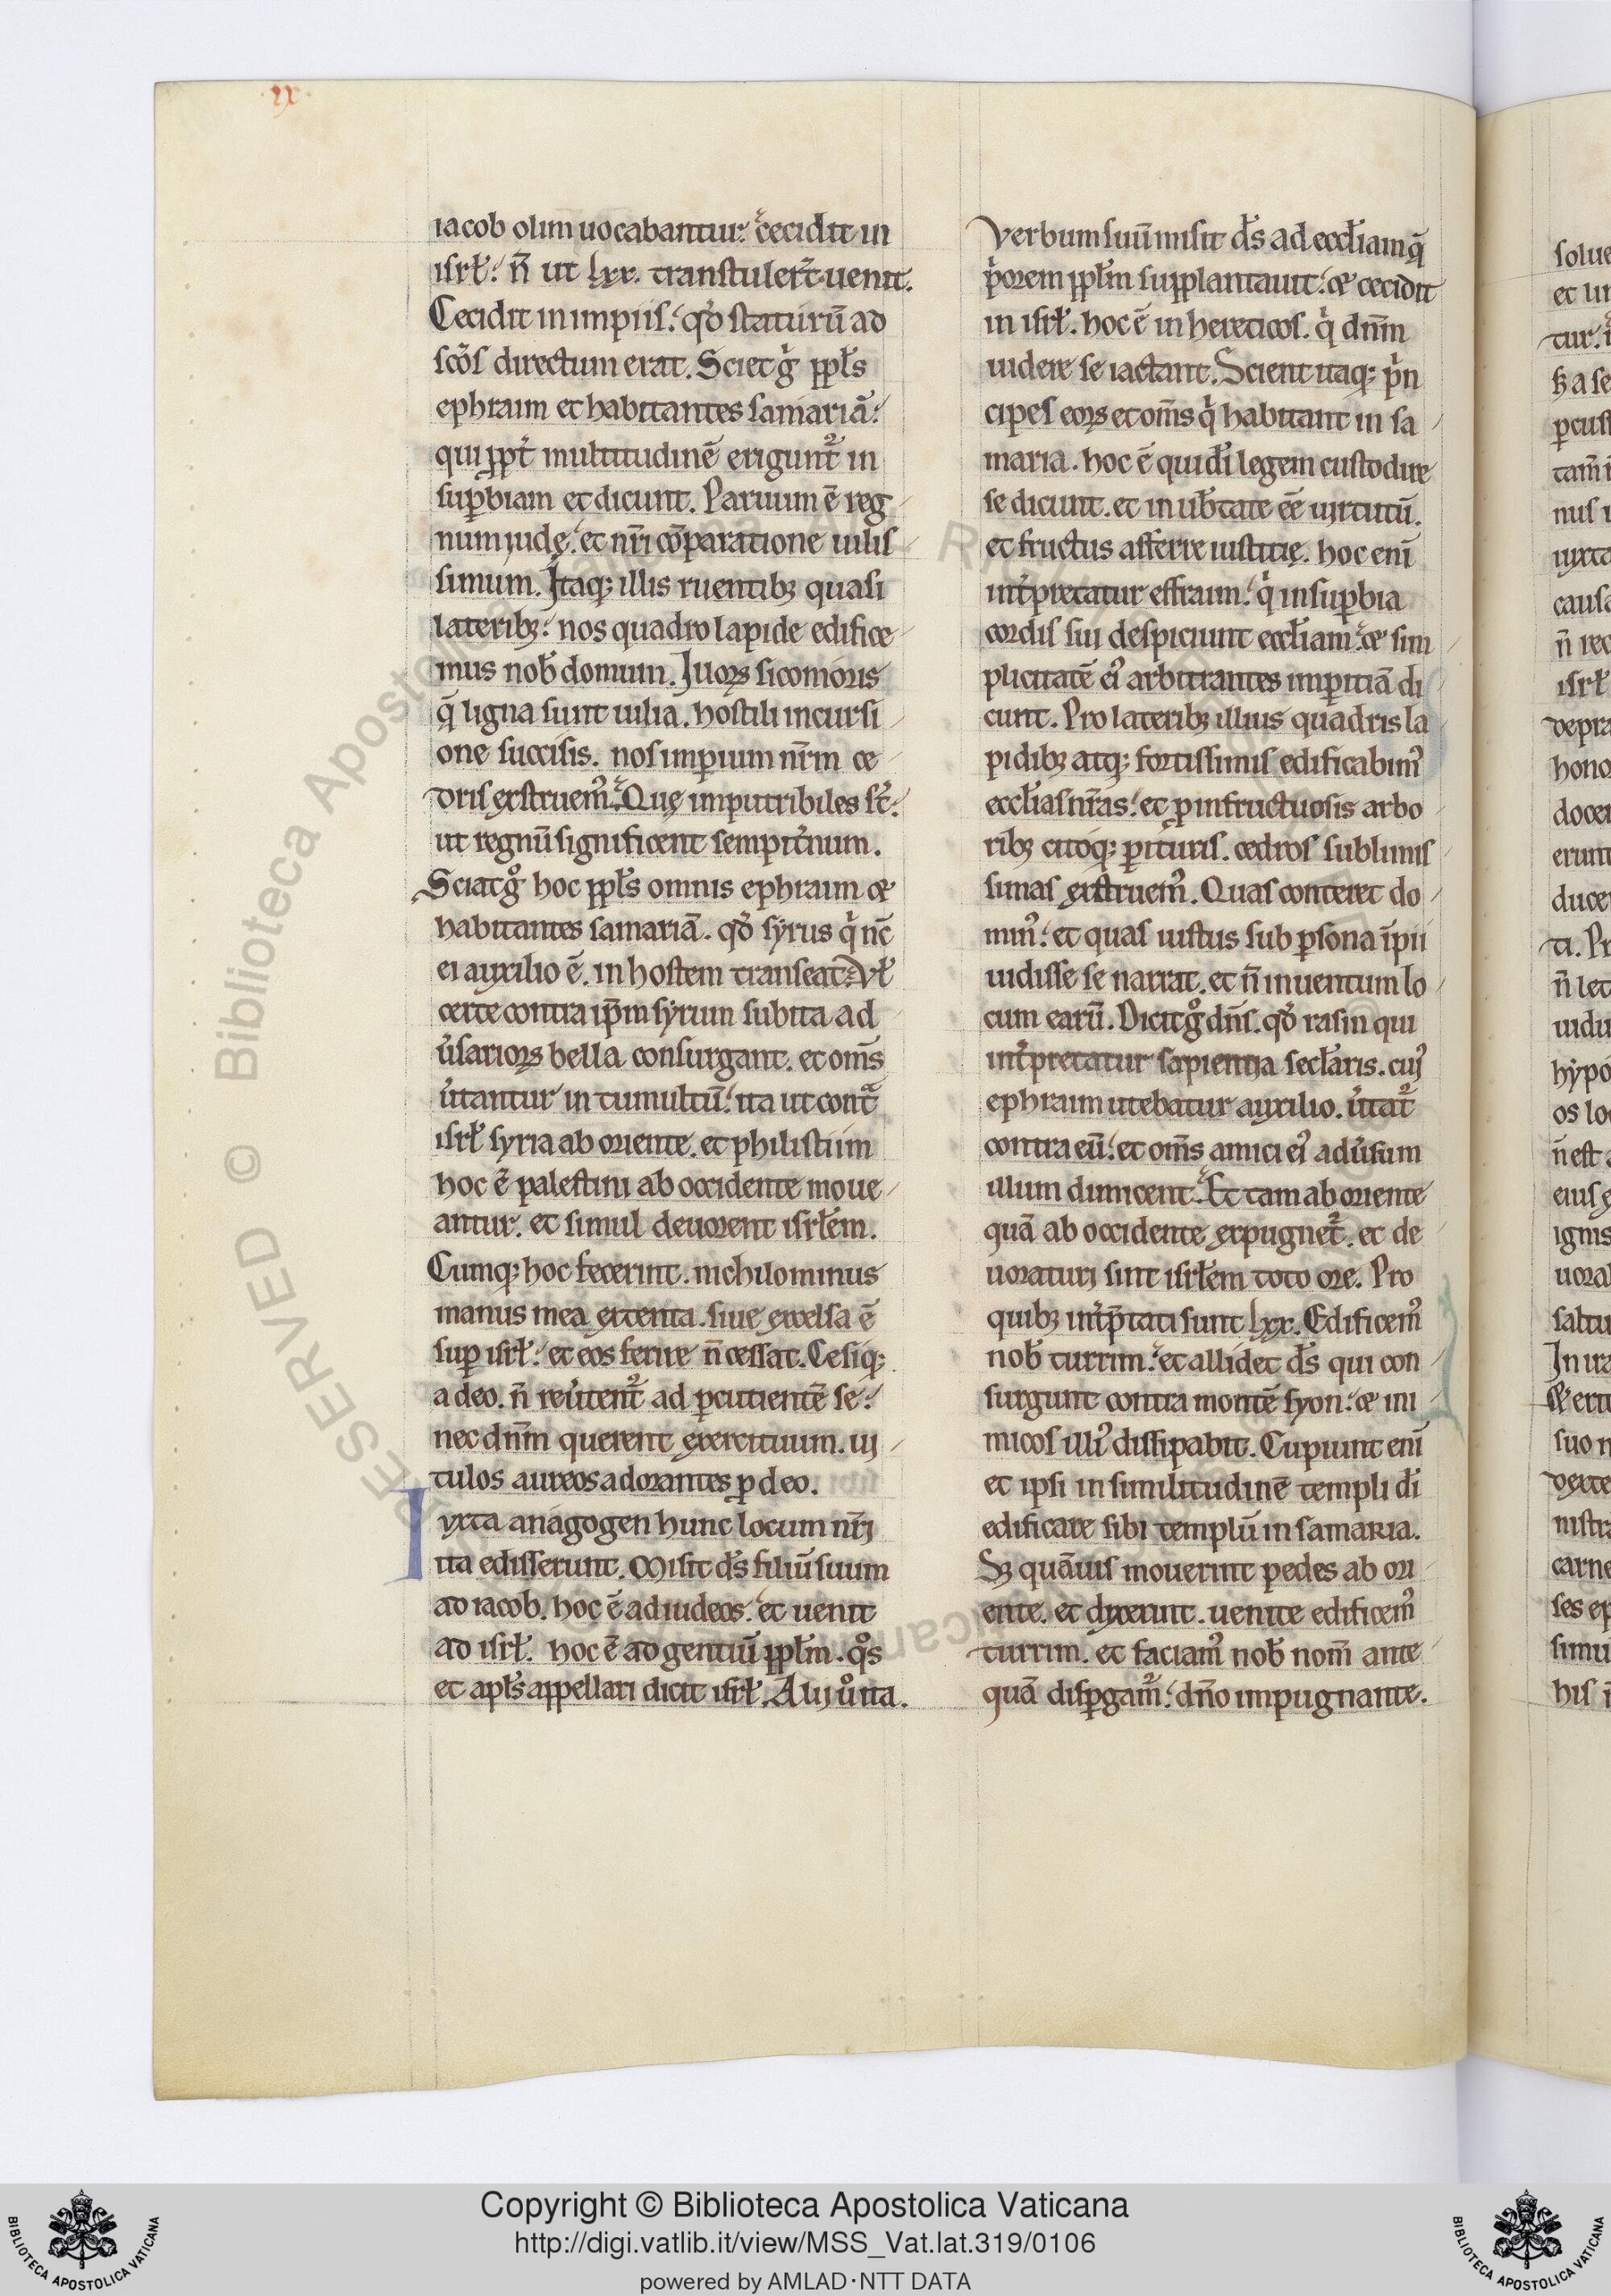 xx
iacob olim uocabantur: cecidit in
isrł: n̄ ut lxx. transtuler̄t uenit.
Cecidit in impiis: qđ staturū ad
sc̄os directum erat. Sciet g̊ ppłs
ephraim et habitantes samariā:
qui ppt̓ multitudinē erigunt᷑ in
suꝑbiam et dicunt. Paruum ē reg
num iudę: et nr̄i cōparatione uilis
simum. Itaq; illis ruentibꝫ quasi
lateribꝫ: nos quadro lapide edifice
mus nob̄ domum. Illoꝝ sicomoris
q̄ ligna sunt uilia. hostili incursi
one succisis. nos imꝑium nr̄m ce
dris exstruem᷒. Quę imputribiles st̄:
ut regnū significent sempit̓num.
Sciat g̊ hoc ppłs omnis ephraim et
habitantes samariā. qđ syrus q̓ nc̄
ei auxilio ē. in hostem transeat. Vł
certe contra ip̄m syrum subita ad
u̓sarioꝝ bella consurgant. et om̄s
u̓tantur in tumultū: ita ut contᷓ
isrł syria ab oriente. et philistiim
hoc ē palestini ab occidente moue
antur. et simul deuorent isrłem.
Cumq; hoc fecerint. nichilominus
manus mea extenta. siue excelsa ē
suꝑ isrł: et eos ferire n̄ cessat. Cesiq;
a deo. n̄ reu̓tent᷑ ad ꝑcutientē se:
nec dn̄m querent exercituum. ui
tulos aureos adorantes ꝓ deo.
Iuxta anagogen hunc locum nr̄i
ita edisserunt. Misit d̄s filiū suum
ad iacob. hoc ē ad iudeos. et uenit
ad isrł. hoc ē ad gentiū ppłm. qͦs
et apłs appellari dicit isrł. Alij uͦ ita.
Verbum suū misit d̄s ad eccłiam q̄
p̓orem ppłm supplantauit: et cecidit
in isrł. hoc ē in hereticos. q̓ dn̄m
uidere se iactant. Scient itaq; p̓n
cipes eoꝝ et om̄s q̓ habitant in sa
maria. hoc ē qui dī legem custodire
se dicunt. et in ub̄tate eē uirtutū.
et fructus afferre iustitię. hoc enī
int̓pretatur effraim: q̓ in suꝑbia
cordis sui despiciunt eccłiam: et sim
plicitatē ei᷒ arbitrantes imꝑitiā di
cunt. Pro lateribꝫ illius quadris la
pidibꝫ atq; fortissimis edificabim᷒
eccłias nr̄as: et ꝓ infructuosis arbo
ribꝫ citoq; ꝑituris. cedros sublimis
simas exstruem᷒. Quas conteret do
min᷒: et quas iustus sub ꝑsona īpii
uidisse se narrat. et n̄ inuentum lo
cum earū. Dicit g̊ dn̄s. qđ rasin qui
int̓pretatur sapientia secłaris. cui᷒
ephraim utebatur auxilio. u̓tat᷑
contra eū: et om̄s amici ei᷒ adu̓sum
illum dimicent. Et tam ab oriente
quā ab occidente expugnet᷑. et de
uoraturi sint isrłem toto ore. Pro
quibꝫ int̓p̄tati sunt lxx. Edificem᷒
nob̄ turrim: et allidet d̄s qui con
surgunt contra montē syon: et ini
micos illi᷒ dissipabit. Cupiunt enī
et ipsi in similitudinē templi dī
edificare sibi templū in samaria.
Sꝫ quāuis mouerint pedes ab ori
ente. et dixerint. uenite edificem᷒
turrim. et faciam᷒ nob̄ nom̄ ante
quā disꝑgam᷒᷑: dn̄o impugnante.
Copyright © Biblioteca Apostolica Vaticana
http://digi.vatlib.it/view/MSS_Vat.lat.319/0106
powered by AMLAD·NTT DATA
BIBLIOTECA APOSTOLICA VATICANA
BIBLIOTECA APOSTOLICA VATICANA